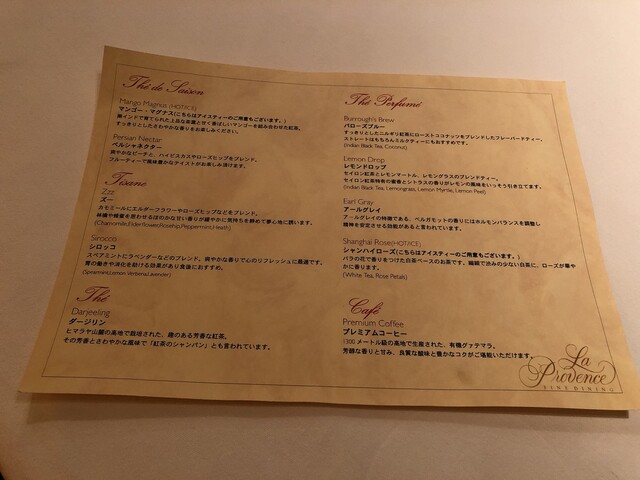 Thé de Saison
Mango Magnus (HOT/ICE)
マンゴー・マグナス(こちらはアイスティーのご用意もございます。)
南インドで育てられた上品な茶葉と甘く香ばしいマンゴーを組み合わせた紅茶。
すっきりとしたさわやかな香りをお楽しみください。
Persian Nectar
ペルシャネクター
爽やかなピーチと、ハイビスカスやローズヒップをブレンド。
フルーティーで風味豊かなテイストがお楽しみ頂けます。
Tisane
Zzz
ズー
カモミールにエルダーフラワーやローズヒップなどをブレンド。
林檎や蜂蜜を思わせるほのかな甘い香りが緩やかに気持ちを静めて夢心地に誘います。
(Chamomile,Elderflower,Rosehip,Peppermint,Heath)
Sirocco
シロッコ
スペアミントにラベンダーなどのブレンド。爽やかな香りで心のリフレッシュに最適です。
胃の働きや消化を助ける効果があり食後におすすめ。
(Spearmint,Lemon Verbena,Lavender)
Thé
Darjeeling
ダージリン
ヒマラヤ山麓の高地で栽培された、趣のある芳香な紅茶。
その芳香とさわやかな風味で「紅茶のシャンパン」とも言われています。
Thé Perfumé
Burrough's Brew
バローズブルー
すっきりとしたニルギリ紅茶にローストココナッツをブレンドしたフレーバードティー。
ストレートはもちろんミルクティーにもおすすめです。
(Indian Black Tea, Coconut)
Lemon Drop
レモンドロップ
セイロン紅茶とレモンマートル、レモングラスのブレンドティー。
セイロン紅茶特有の香りとシトラスの香りがレモンの風味をいっそう引き立てます。
(Indian Black Tea, Lemongrass, Lemon Myrtle, Lemon Peel)
Earl Gray
アールグレイ
アールグレイの特徴である、ベルガモットの香りにはホルモンバランスを調整し
精神を安定させる効能があると言われています。
Shanghai Rose(HOT/ICE)
シャンハイローズ(こちらはアイスティーのご用意もございます。)
バラの花で香りをつけた白茶ベースのお茶です。繊細で渋みの少ない白茶に、ローズが華や
かに香ります。
(White Tea, Rose Petals)
Café
Premium Coffee
プレミアムコーヒー
1300メートル級の高地で生産された、有機グァテマラ。
芳醇な香りと甘み、良質な酸味と豊かなコクがご堪能いただけます。
La
Provence
FINE DINING